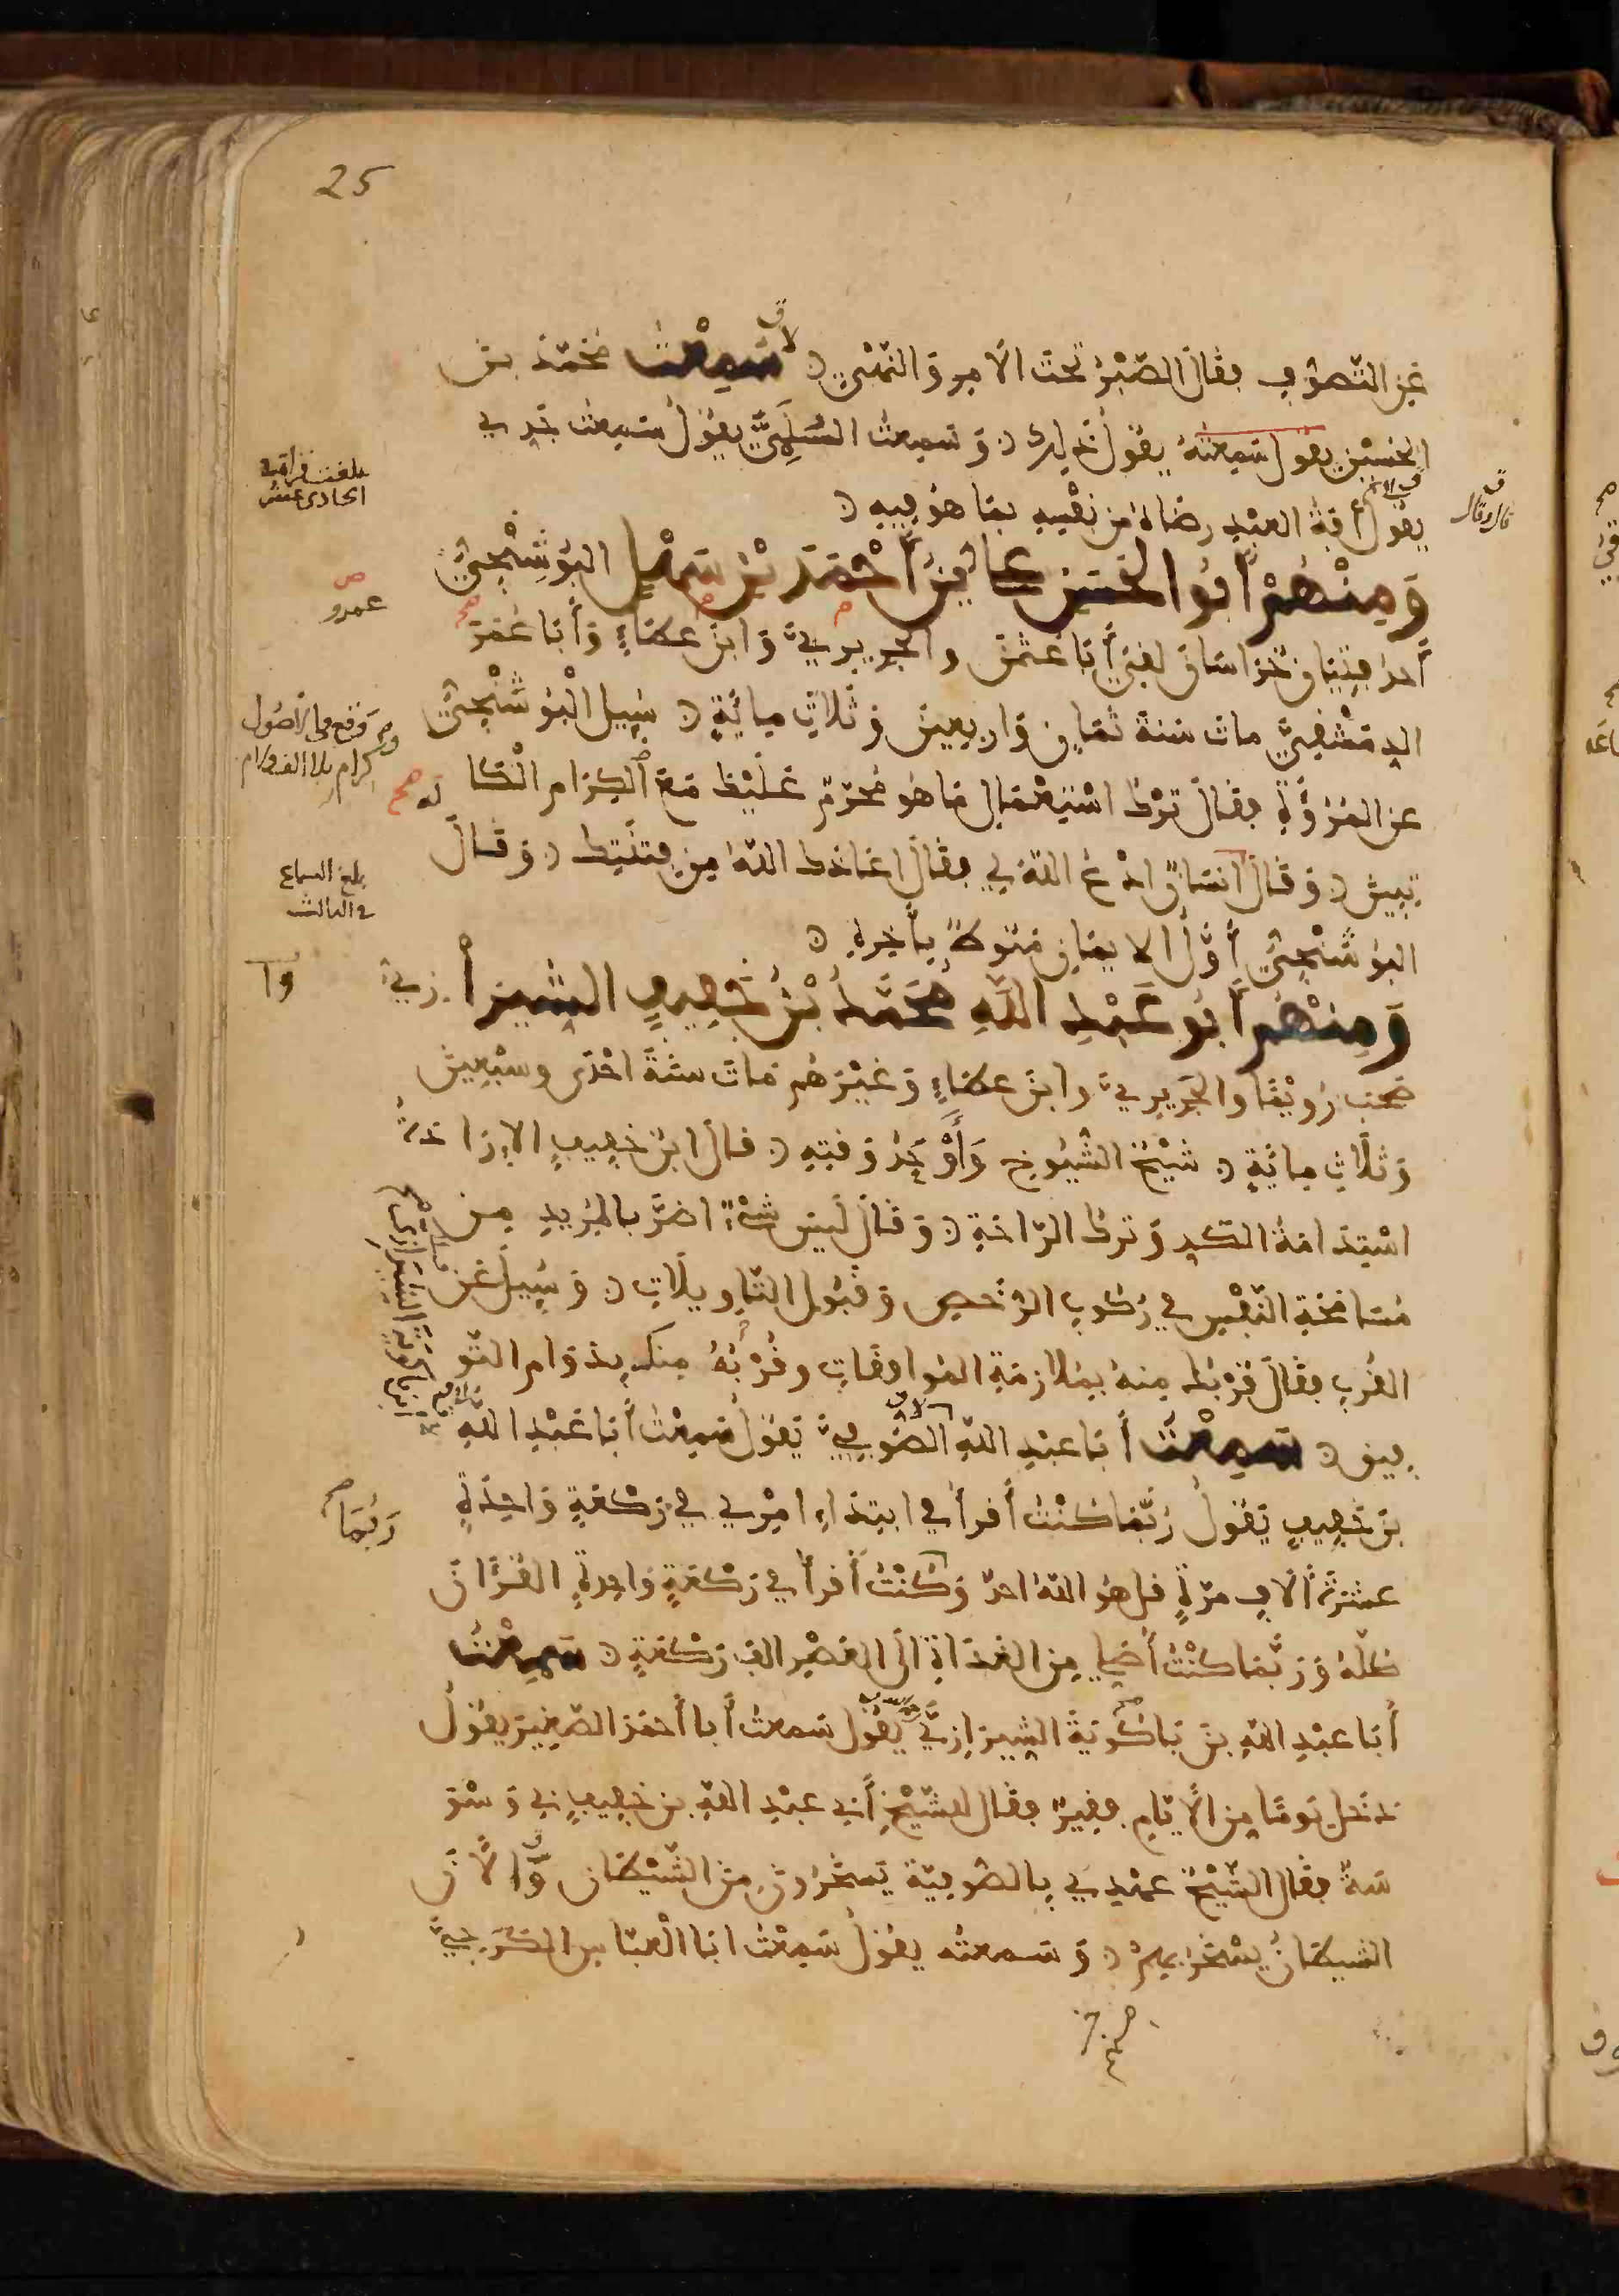 25
عن التصوف فقال الصبر تحت الأمر والنهي سمعت محمد بن
الحسين يقول سمعته يقول ذلك وسمعت السلمي يقول سمعت جدي
يقول آفة العبد رضاه من نفسه بما هو فيه
ومنهم أبو الحسن علي بن أحمد بن سهل البوشنجي
أحد فتيان خراسان لقي أبا عثمن والجريري وابن عطاء وأبا عمر
الدمشقي مات سنة ثمان واربعين وثلاث مائة سئل البوشنجي
عن المروة فقال ترك استعمال ما هو محرم عليك مع الكرام الكا
تبين وقال له انسان ادع الله لي فقال اعاذك الله من فتنتك وقال
البوشنجي أول الايمان منوط بآخره
ومنهم أبو عبد الله محمد بن خفيف الشيرازي
صحب رويما والجريري وابن عطاء وغيرهم مات سنة احدى وسبعين
وثلاث مائة شيخ الشيوخ وأوحد وقته قال ابن خفيف الارادة
استدامة الكد وترك الراحة وقال ليس شيء اضر بالمريد من
مسامحة النفس في ركوب الرخص وقبول التاويلات وسئل عن
القرب فقال قربك منه بملازمة الموافقات وقربه منك بدوام التو
فيق سمعت أبا عبد الله الصوفي يقول سمعت أبا عبد الله
بن خفيف يقول ربما كنت أقرأ في ابتداء امري في ركعة واحدة
عشرة ألاف مرة قل هو الله احد وكنت أقرأ في ركعة واحدة القرآن
كله وربما كنت أصلي من الغداة الى العصر الف ركعة سمعت
أبا عبد الله بن باكوية الشيرازي يقول سمعت أبا أحمد الصغير يقول
دخل يوما من الأيام فقير فقال للشيخ أبي عبد الله بن خفيف بي وسو
سة فقال الشيخ عهدي بالصوفية يسخرون من الشيطان والأن
الشيطان يسخر بهم وسمعته يقول سمعت ابا العباس الكرجي
بلغت قراءة
الحادي عشر
عمرو
بلغ السماع
في الثالث
ربما